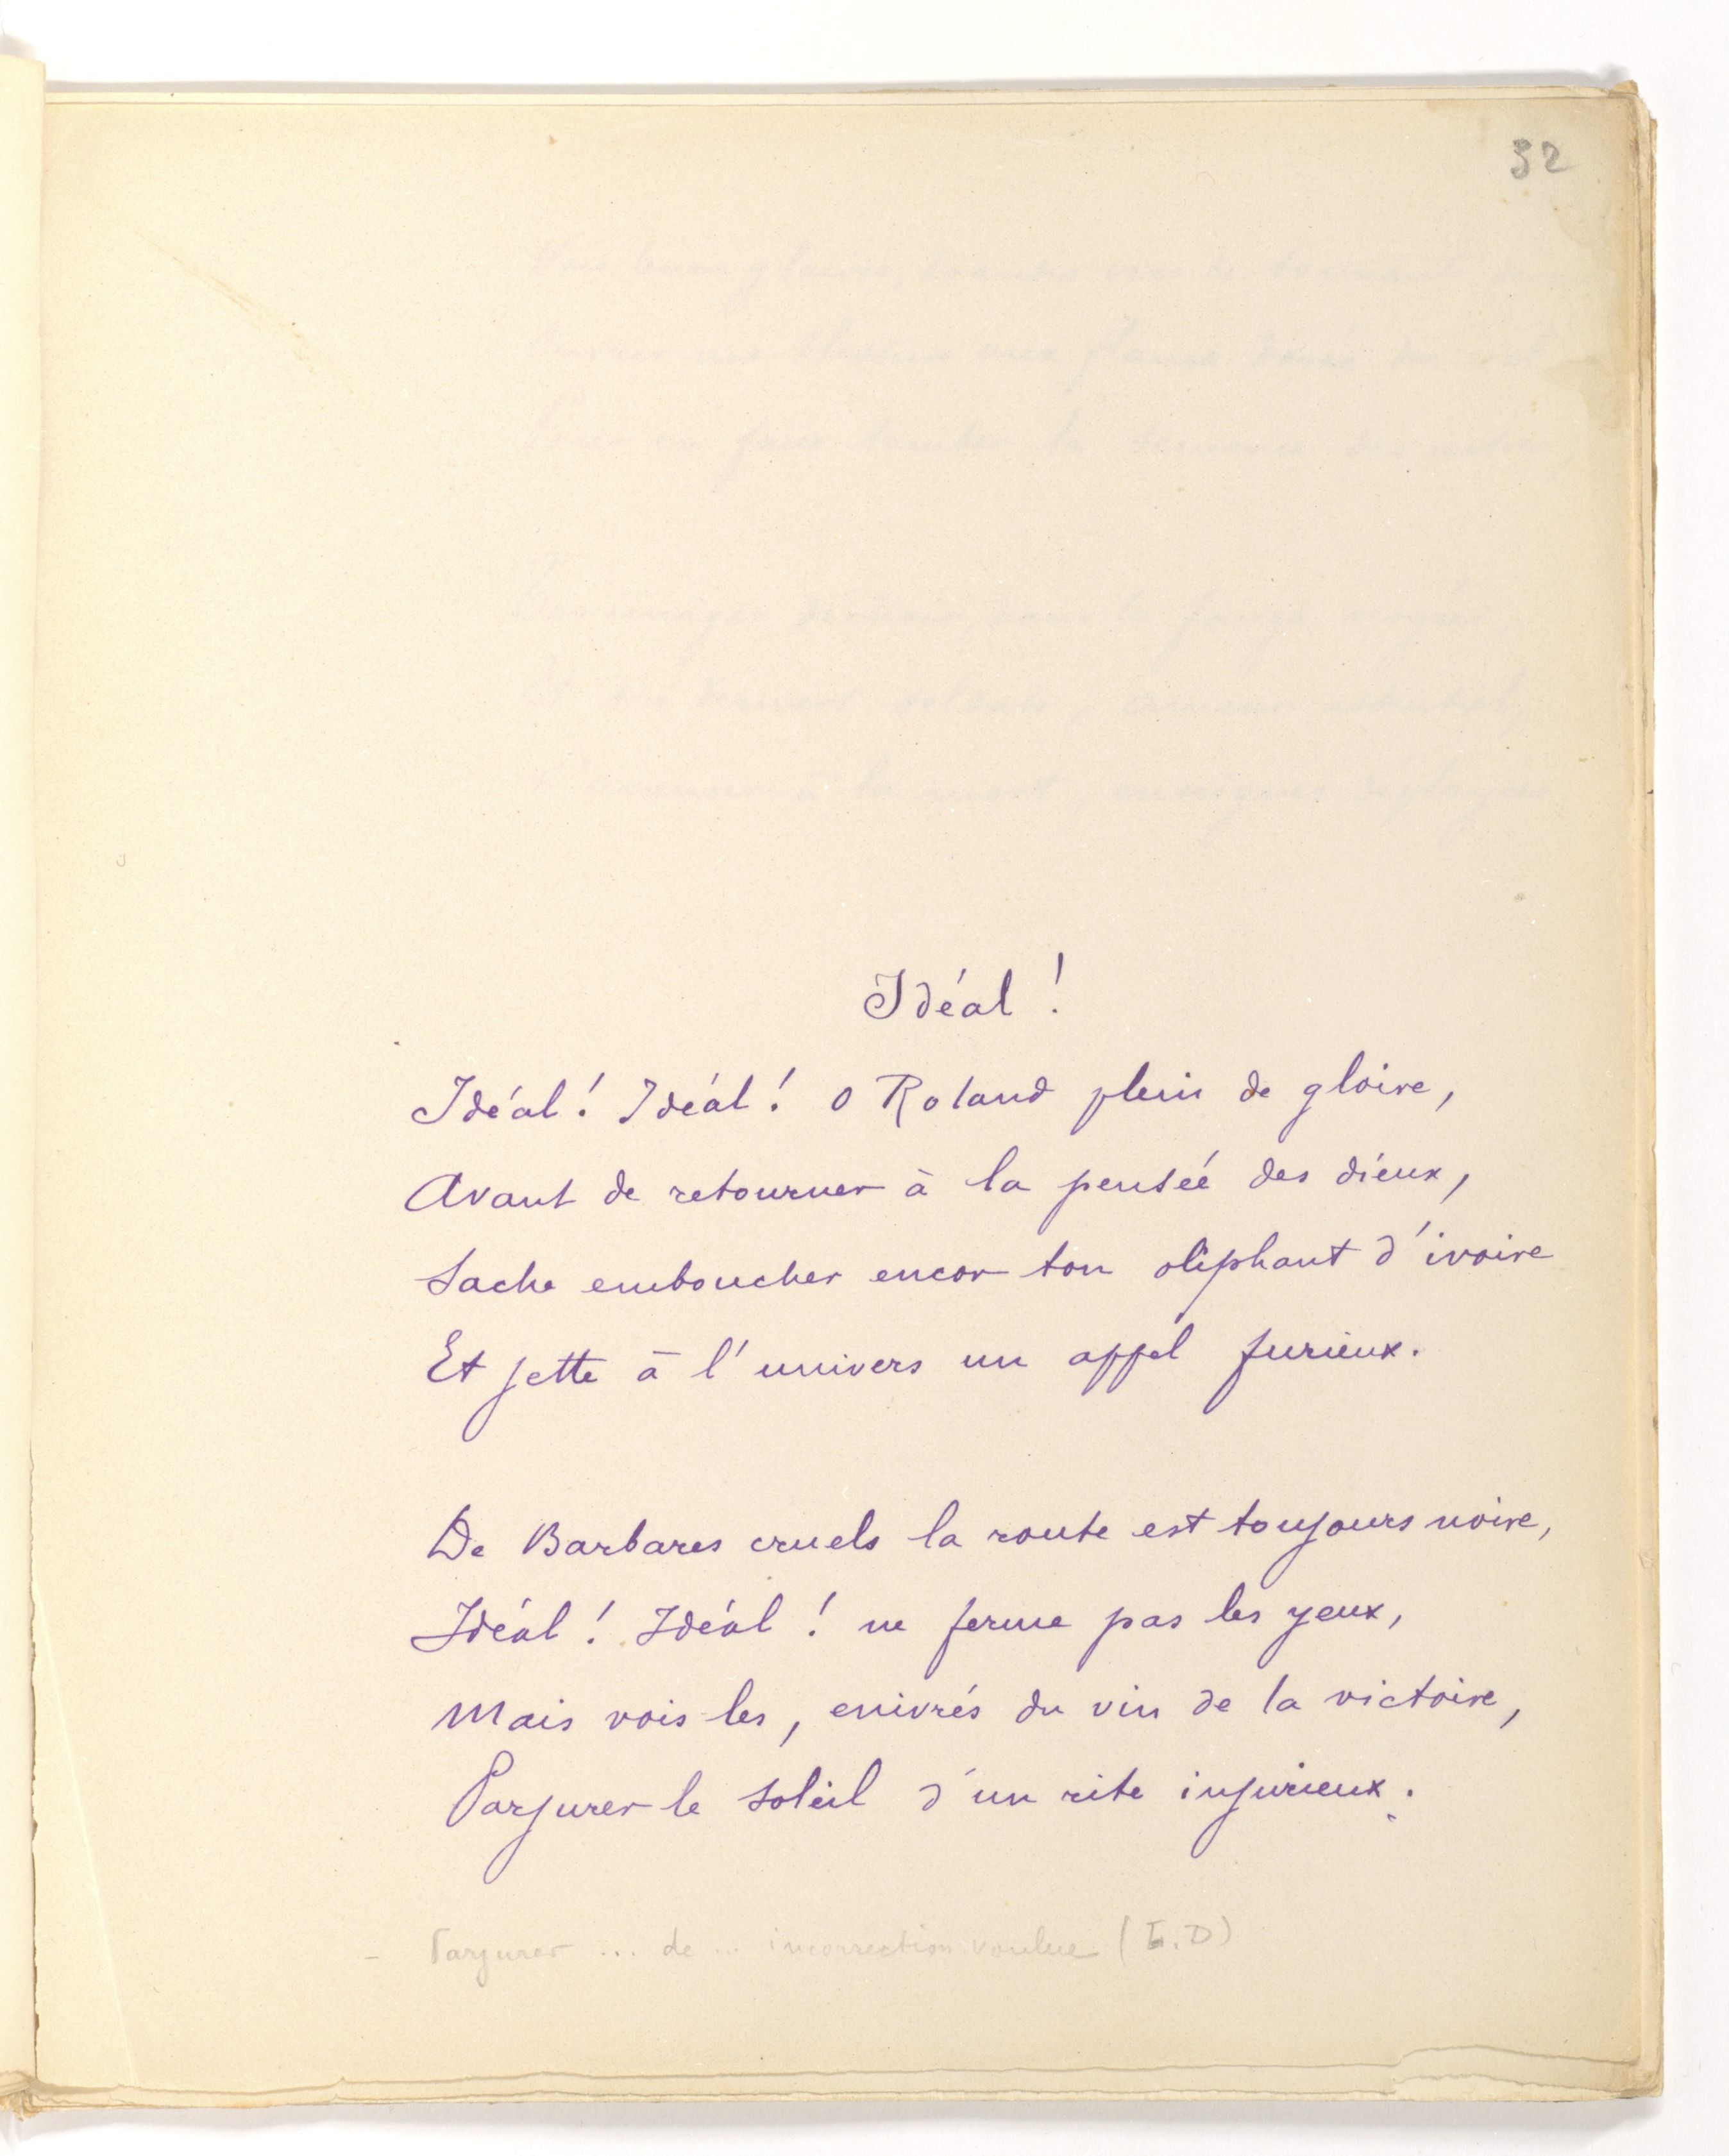 32
Idéal !
Idéal ! Idéal ! O Roland plein de gloire,
Avant de retourner à la pensée des dieux,
Sache emboucher encor ton oliphant d'ivoire
Et jette à l'univers un appel furieux.
De Barbares cruels la route est toujours noire,
Idéal ! Idéal ! ne ferme pas les yeux,
Mais vois-les, enivrés du vin de la victoire,
Parjurer le soleil d'un rite injurieux.
- Parjurer ... de ... incorrection voulue (E.D)